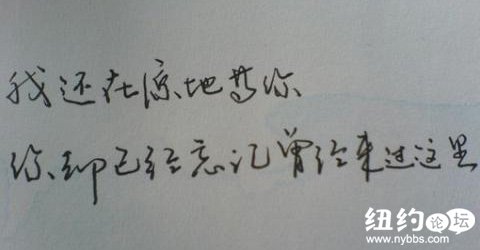 我还在原地等你
你却已经忘记曾经来过这里
纽约论坛
www.nybbs.com